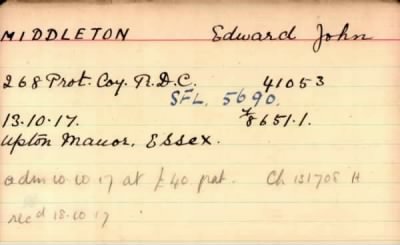 MIDDLETON Edward John
268 Prot. Coy. R.D.C. 41053
SFL. 5690.
13.10.17. 8651.1.
Upton Manor, Essex.
adm 10.10.17 at £40 prat. Ch 131708 H
rec'd 18.10.17